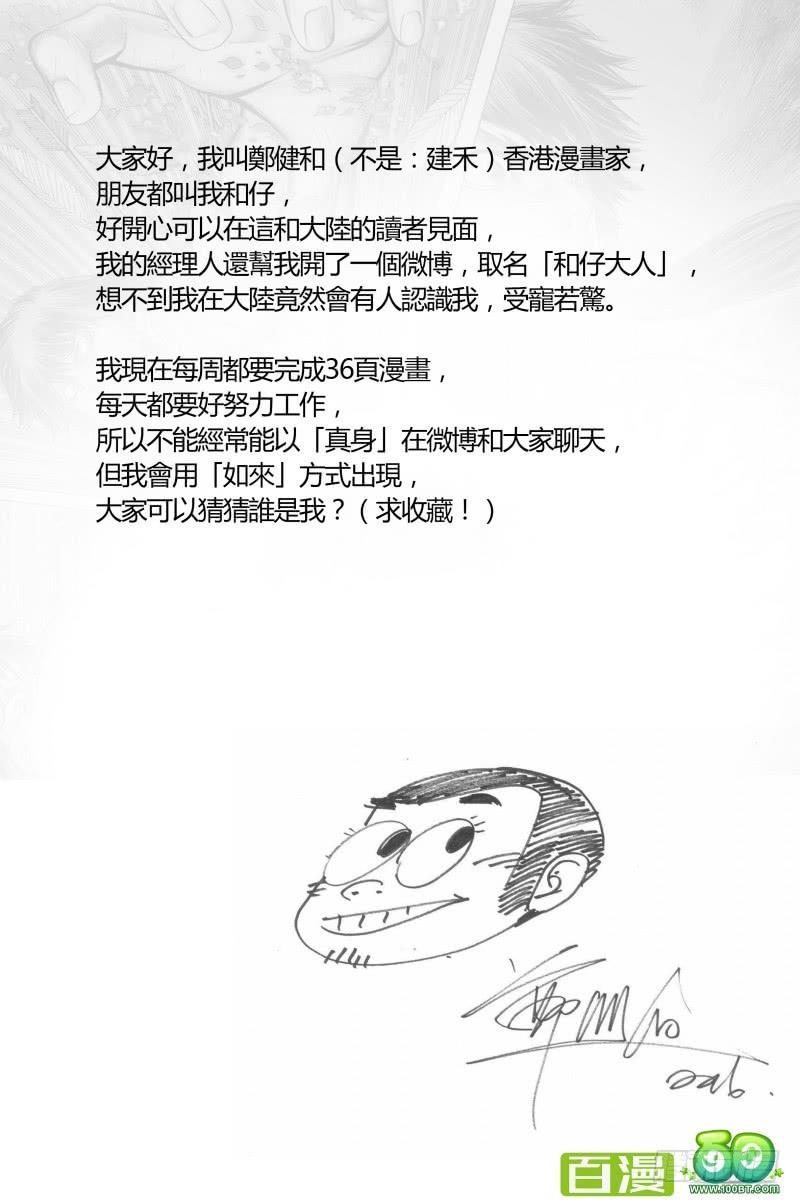 大家好，我叫鄭健和（不是：建禾）香港漫畫家，
朋友都叫我和仔，
好開心可以在這和大陸的讀者見面，
我的經理人還幫我開了一個微博，取名「和仔大人」，
想不到我在大陸竟然會有人認識我，受寵若驚。
我現在每周都要完成36頁漫畫，
每天都要好努力工作，
所以不能經常能以「真身」在微博和大家聊天，
但我會用「如來」方式出現，
大家可以猜猜誰是我？（求收藏！）
百漫
WWW.100BT.COM